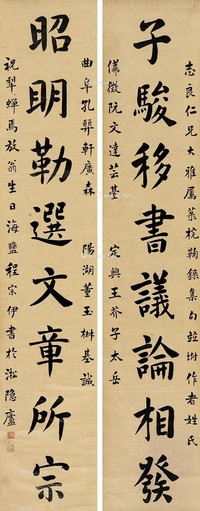 子駿移書議論相發
志良仁兄大雅屬菉梡鞠錄集句並坿作者姓氏
儀徵阮文達芸臺
定興王芥子太岳
昭明勒選文章所宗
曲阜孔㢲軒廣森
陽湖董玉椒基誠
祝犁蟬焉放翁生日海鹽程宗伊書於淞隱廬